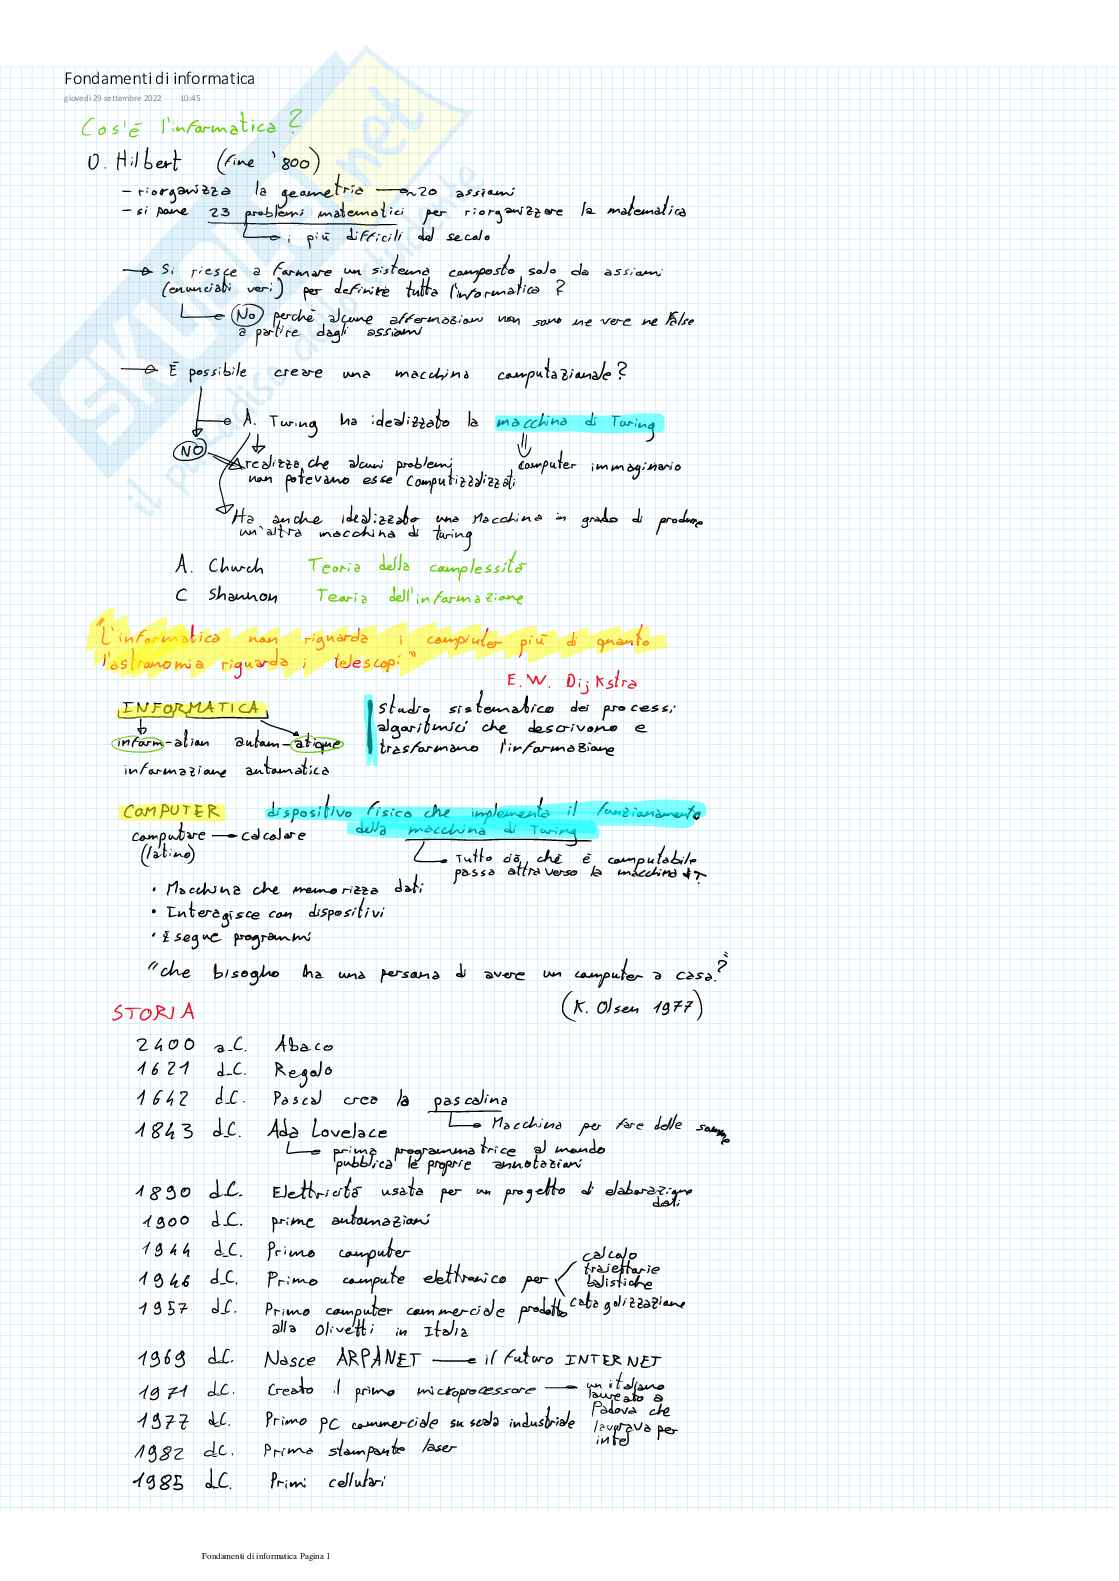 Fondamenti di informatica
giovedì 29 settembre 2022 10:45
Cos'è l'informatica?
D. Hilbert (fine '800)
- riorganizza la geometria → 20 assiomi
- si pone 23 problemi matematici per riorganizzare la matematica
i più difficili del secolo
→ Si riesce a formare un sistema composto solo da assiomi
(enunciati veri) per definire tutta l'informatica?
NO perchè alcune affermazioni non sono ne vere ne false
a partire dagli assiomi
→ È possibile creare una macchina computazionale?
A. Turing ha idealizzato la macchina di Turing
NO
realizza che alcuni problemi computer immaginario
non potevano esse computizzalizzati
Ha anche idealizzato una macchina in grado di produrre
un'altra macchina di turing
A. Church Teoria della complessità
C Shannon Teoria dell'informazione
"L'informatica non riguarda i computer più di quanto
l'astronomia riguarda i telescopi"
E.W. Dijkstra
INFORMATICA Studio sistematico dei processi
algoritmici che descrivono e
inform-ation autom-atique trasformano l'informazione
informazione automatica
COMPUTER dispositivo fisico che implementa il funzionamento
della macchina di Turing
computare → calcolare
(latino)
Tutto ciò che è computabile
passa attraverso la macchina d T
• Macchina che memorizza dati
• Interagisce con dispositivi
• Esegue programmi
"che bisogno ha una persona di avere un computer a casa?"
(K. Olsen 1977)
STORIA
2400 a.C. Abaco
1621 d.C. Regolo
1642 d.C. Pascal crea la pascalina
Macchina per fare delle somme
1843 d.C. Ada Lovelace
prima programmatrice al mondo
pubblica le proprie annotazioni
1890 d.C. Elettricità usata per un progetto di elaborazione
dati
1900 d.C. prime automazioni
1944 d.C. Primo computer
1946 d.C. Primo compute elettronico per
calcolo
traiettorie
balistiche
catagolizzazione
1957 d.C. Primo computer commerciale prodotto
alla Olivetti in Italia
1969 d.C. Nasce ARPANET → il futuro INTERNET
1971 d.C. Creato il primo microprocessore — un italiano
laureato a
Padova che
lavorava per
intel
1977 d.C. Primo PC commerciale su scala industriale
1982 d.C. Prima stampante laser
1985 d.C. Primi cellulari
Fondamenti di informatica Pagina 1